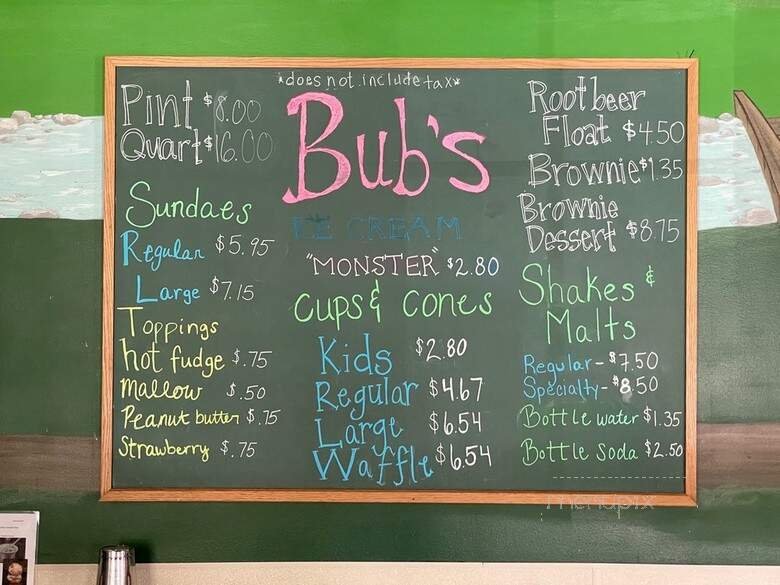 *does not include tax*
Pint $8.00
Quart $16.00
Sundaes
Regular $5.95
Large $7.15
Toppings
hot fudge $.75
mallow $.50
Peanut butter $.75
Strawberry $.75
Bub's
ICE CREAM
"MONSTER" $2.80
Cups & Cones
Kids $2.80
Regular $4.67
Large $6.54
Waffle $6.54
Root beer
Float $4.50
Brownie $1.35
Brownie
Dessert $8.75
Shakes &
Malts
Regular - $7.50
Specialty - $8.50
Bottle water $1.35
Bottle Soda $2.50
menupix